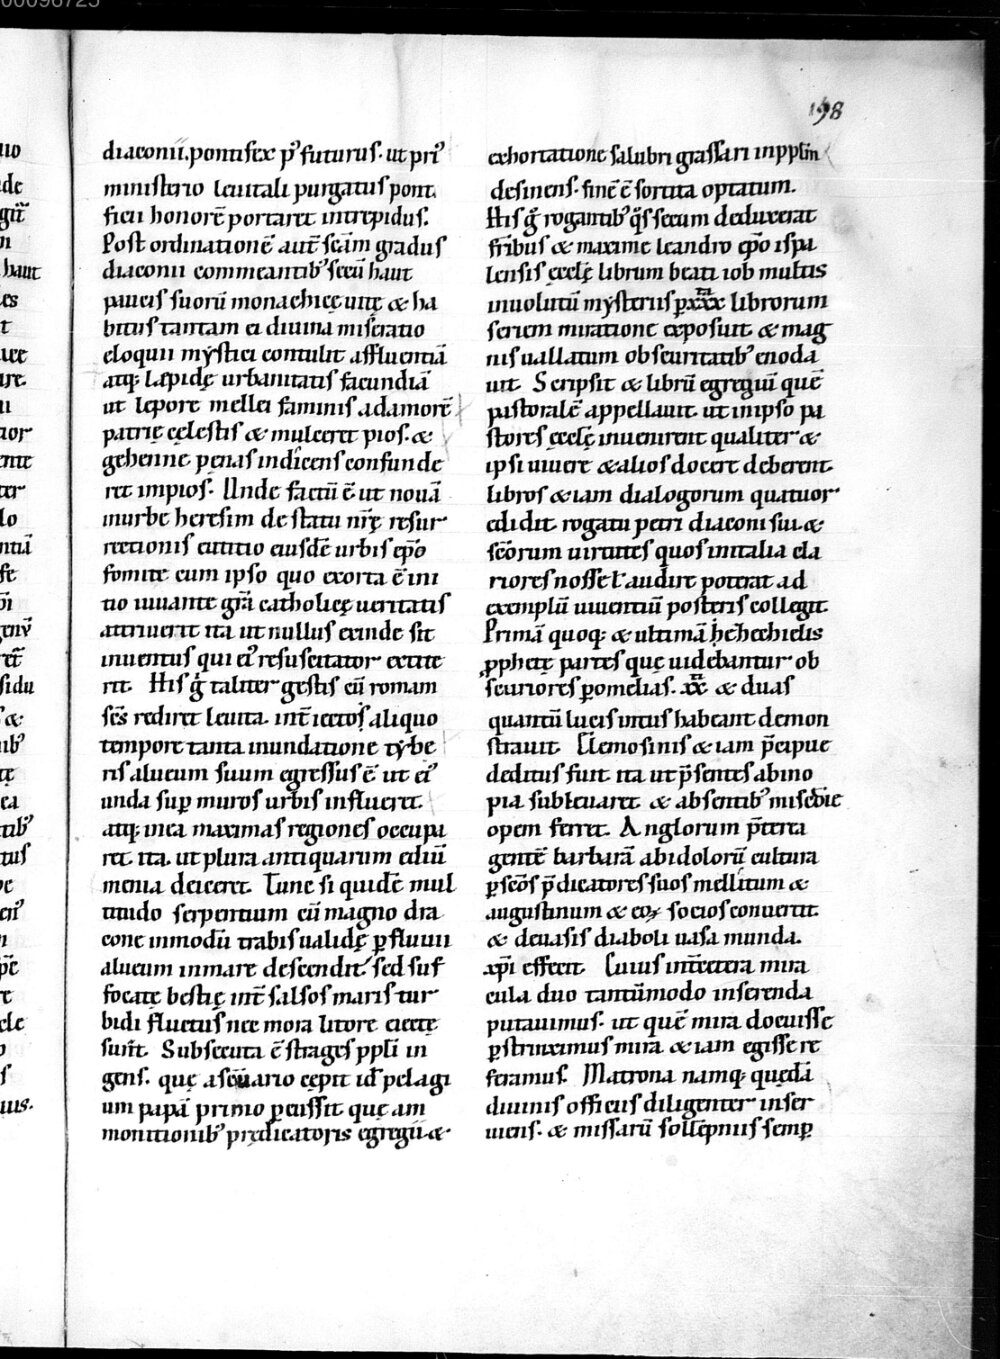 198
diaconii. pontifex p᷒ futurus. ut pri᷒
ministerio leuitali purgatus pont
ficii honorē portaret intrepidus.
Post ordinationē aut̄ scām gradus
diaconii commeantib᷒ secū haut
paucis suorū monachicę uitę & ha
bitus tantam ei diuina miseratio
eloquii mystici contulit affluentiā
atq; lapidę urbanitatis facundiā
ut lepore mellei faminis ad amorē
patrię cęlestis & mulceret pios. &
gehenne penas indicens confunde
ret impios. Unde factū ē ut nouā
in urbe heresim de statu nr̄ę resur
rectionis eutitio eiusdē urbis ep̄o
fomite cum ipso quo exorta ē ini
tio iuuante gr̄a catholicę ueritatis
attriuerit ita ut nullus exinde sit
inuentus qui ei᷒ resuscitator extite
rit. His g̊ taliter gestis cū romam
sēs rediret leuita. int̄ iectos aliquo
tempore tanta inundatione tybe
ris alueum suum egressus ē ut ei᷒
unda sup̱ muros urbis influeret.
atq; in ea maximas regiones occupa
ret ita. ut plura antiquarum ediū
menia deiceret. Tunc si quidē mul
titudo serpentium cū magno dra
cone in modū trabis ualidę p̱ fluuii
alueum in mare descendit. sed suf
focatę bestię int̄ salsos maris tur
bidi fluctus nec mora litore eiectę
sunt. Subsecuta ē strages pp̄li in
gens. quę a scūario cępit id᷒ pelagi
um papā primo p̱cussit quę am
monitionib᷒ prędicatoris egregii &
exhortatione salubri grassari in pp̄lm
desinens. finē ē sortita optatum.
His g̊ rogantib᷒ q̄s secum deduxerat
fr̄ibus & maxime leandro ep̄o ispa
lensis ęcclę librum beati iob multis
inuolutū mysteriis p̱ xxx librorum
seriem miratione exposuit & mag
nis uallatum obscuritatib᷒ enoda
uit. Scripsit & librū egregiū quē
pastoralē appellauit. ut in ipso pa
stores ęcclę inuenirent qualiter &
ipsi uiuere & alios docere deberent.
libros & iam dialogorum quatuor
edidit. rogatu petri diaconi sui. &
sc̄orum uirtutes quos in italia cla
riores nosse ł audire poterat ad
exemplū uiuentiū posteris collegit.
Primā quoq; & ultimā hechechielis
ꝓphetę partes quę uidebantur ob
scuriores p̱ omelias. xx & duas
quantū lucis intus habeant demon
strauit. Elemosinis & iam p̄cipue
deditus fuit. ita ut p̄sentes ab ino
pia subleuaret. & absentib᷒ misēdię
opem ferret. Anglorum p̄terea
gentē barbarā ab idolorū cultura
p̱ sc̄os p̄dicatores suos mellitum &
augustinum & eoꝝ socios conuertit.
& de uasis diaboli uasa munda.
xp̄i effecit. Cuius int̄ cetera mira
cula duo tantūmodo inserenda
putauimus. ut quē mira docuisse
p̱strinximus mira & iam egisse re
feramus. Matrona namq; quędā
diuinis officiis diligenter inser
uiens. & missarū sollēpniis semp̱